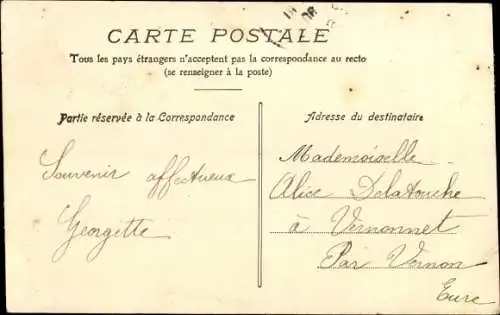 CARTE POSTALE
Tous les pays étrangers n'acceptent pas la correspondance au recto
(se renseigner à la poste)
Partie réservée à la Correspondance
Souvenir affectueux
Georgitte
Adresse du destinataire
Mademoiselle
Alice Delatouche
à Vernonnet
Par Vernon
Eure